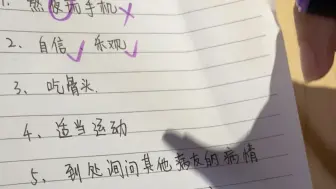 1. 熬夜玩手机 ×
2、自信 ✓ 乐观 ✓
3、吃骨头
4、适当运动
5、到处询问其他病友的病情